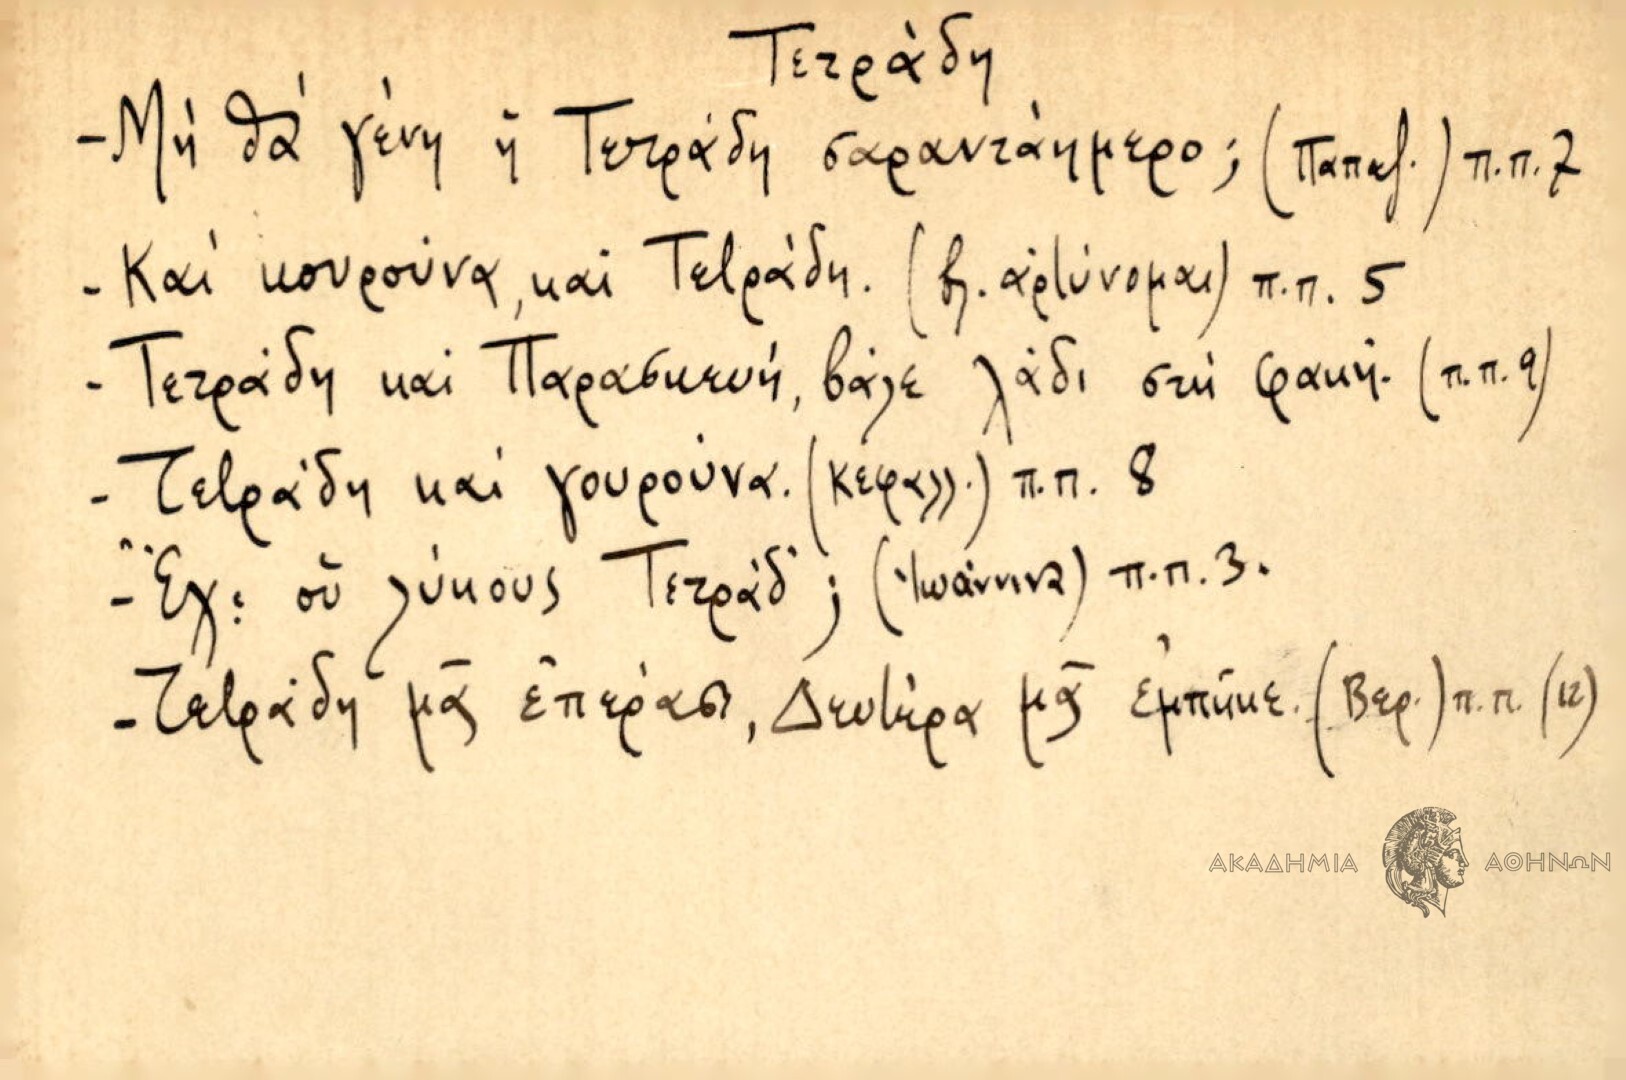 Τετράδη
- Μή θά γένη ἡ Τετράδη σαραντάημερο; (Παπαζ.) π.π. 7
- Καί κουρούνα, καί Τετράδη. (βλ. ἀρτύνομαι) π.π. 5
- Τετράδη καί Παρασκευή, βάλε λάδι στή φακή. (π.π. 9)
- Τετράδη καί γουρούνα. (Κεφαλλ.) π.π. 8
- Ἔχ; οὑ λύκους Τετράδ'; (Ἰωάννινα) π.π. 3.
- Τετράδη μᾶς ἐπέρασε, Δευτέρα μᾶς ἐμπῆκε. (Βερ.) π.π. (12)
ΑΚΑΔΗΜΙΑ ΑΘΗΝΩΝ